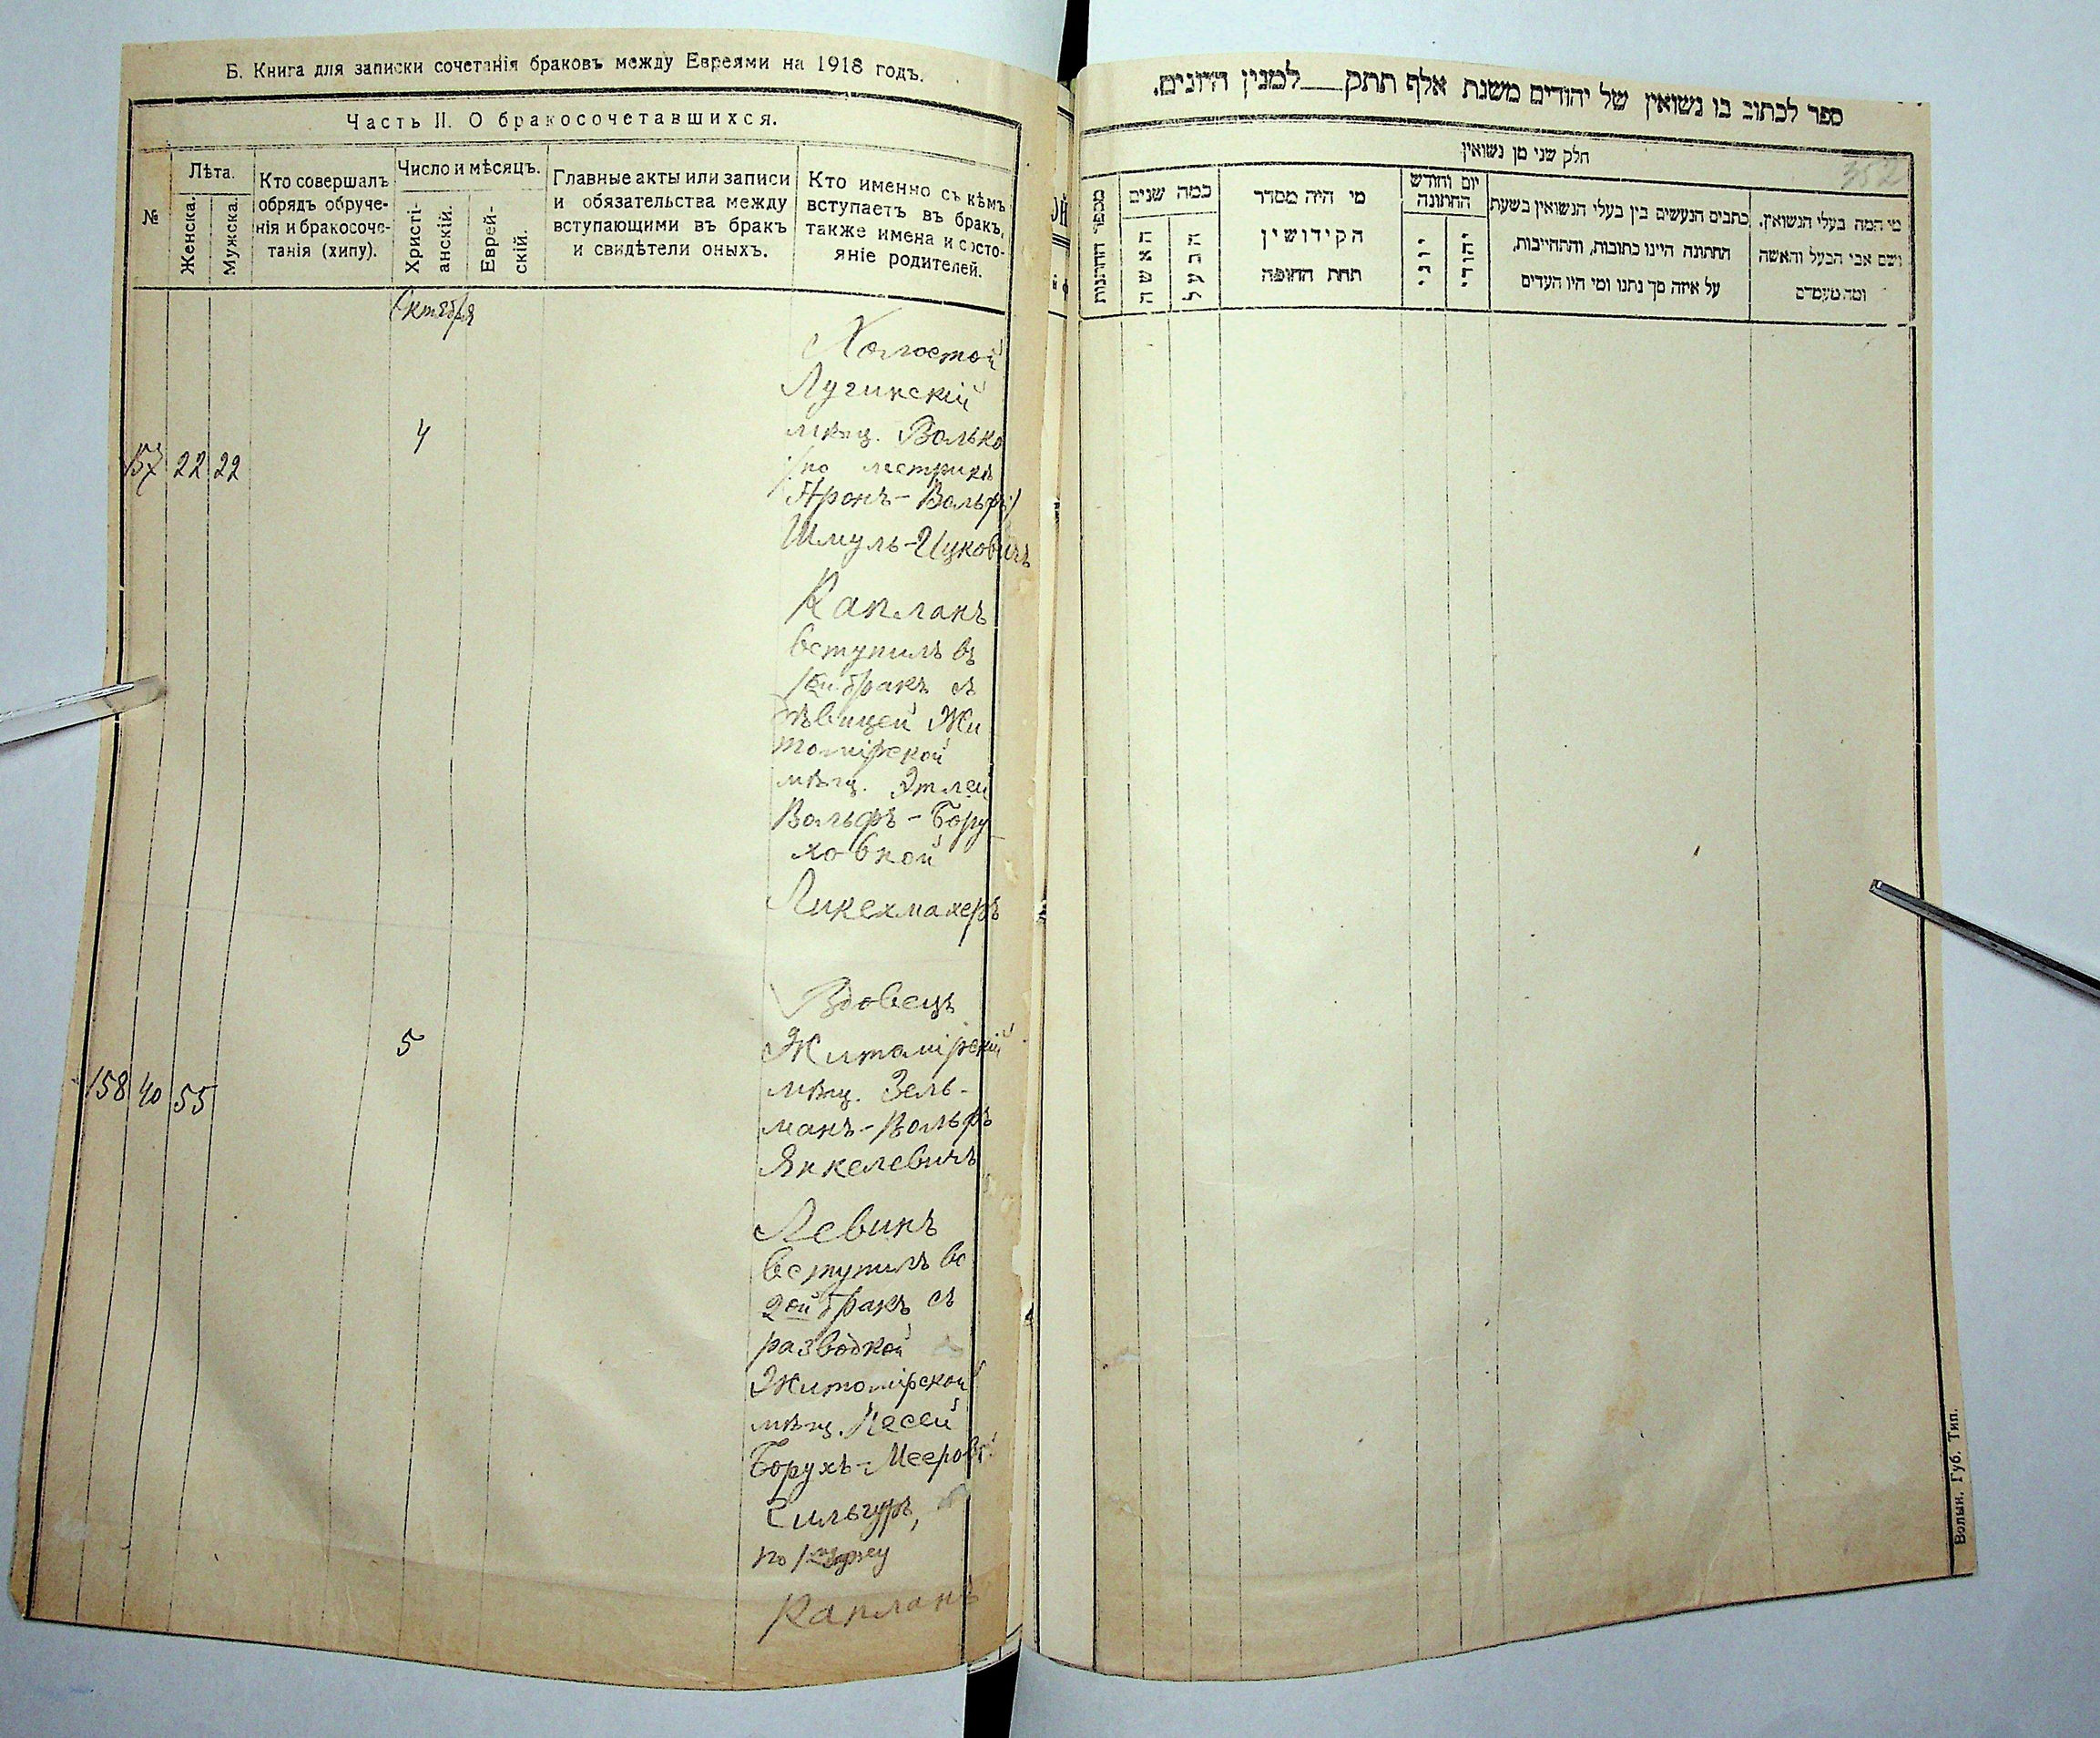 Б. Книга для записки сочетанія браковъ между Евреями на 1918 годъ.
Часть II. О бракосочетавшихся.
№
Лѣта.
Женска.
Мужска.
Кто совершалъ
обрядъ обруче-
нія и бракосоче-
танія (хипу).
Число и мѣсяцъ.
Христі-
анскій.
Еврей-
скій.
Главные акты или записи
и обязательства между
вступающими въ бракъ
и свидѣтели оныхъ.
Кто именно съ кѣмъ
вступаетъ въ бракъ,
также имена и состо-
яніе родителей.
Октября
157 22 22
4
Холостой
Лугинскій
мѣщ. Волько
/по метрикѣ
Аронъ-Вольфъ/
Шмуль-Ицковичъ
Капланъ
вступилъ въ
1ый бракъ съ
дѣвицей Жи
томірской
мѣщ. Этлей
Вольфъ-Бору
ховной
Ликехмахеръ
158 40 55
5
Вдовецъ
Житомірскій
мѣщ. Зель-
манъ-Вольфъ
Янкелевичъ
Левинъ
вступилъ во
2ой бракъ съ
разводкой
Житомірской
мѣщ. Песей
Борухъ-Мееров
по мужу
Капланъ
ספר לכתוב בו נשואין של יהודים משנת אלף תתק___למנין היונים.
352
חלק שני מן נשואין
מספר החתונות
כמה שנים
האשה
הבעל
מי היה מסדר
הקידושין
תחת החופה
יום וחודש
החתונה
יוני
יהודי
כתבים הנעשים בין בעלי הנשואין בשעת
החתונה היינו כתובות, והתחייבות,
על איזה סך נתנו ומי היו העדים
מי המה בעלי הנשואין,
ושם אבי הבעל והאשה
ומה מעמדם
Волын. Губ. Тип.